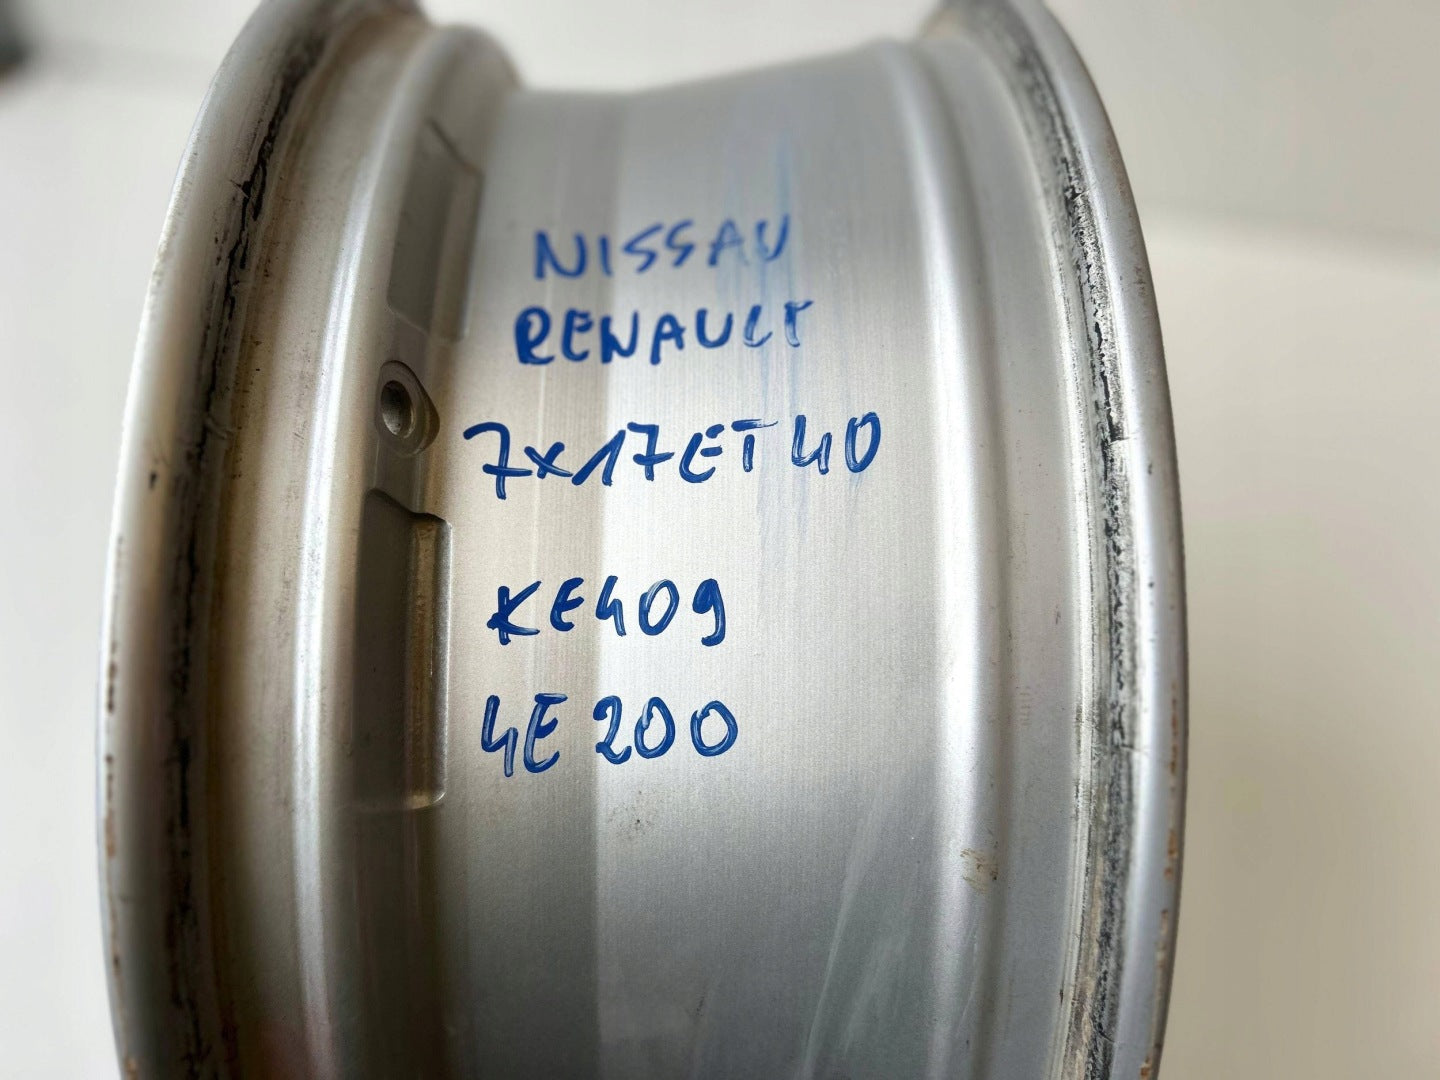 NISSAN
RENAULT
7x17ET40
KE409
4E200